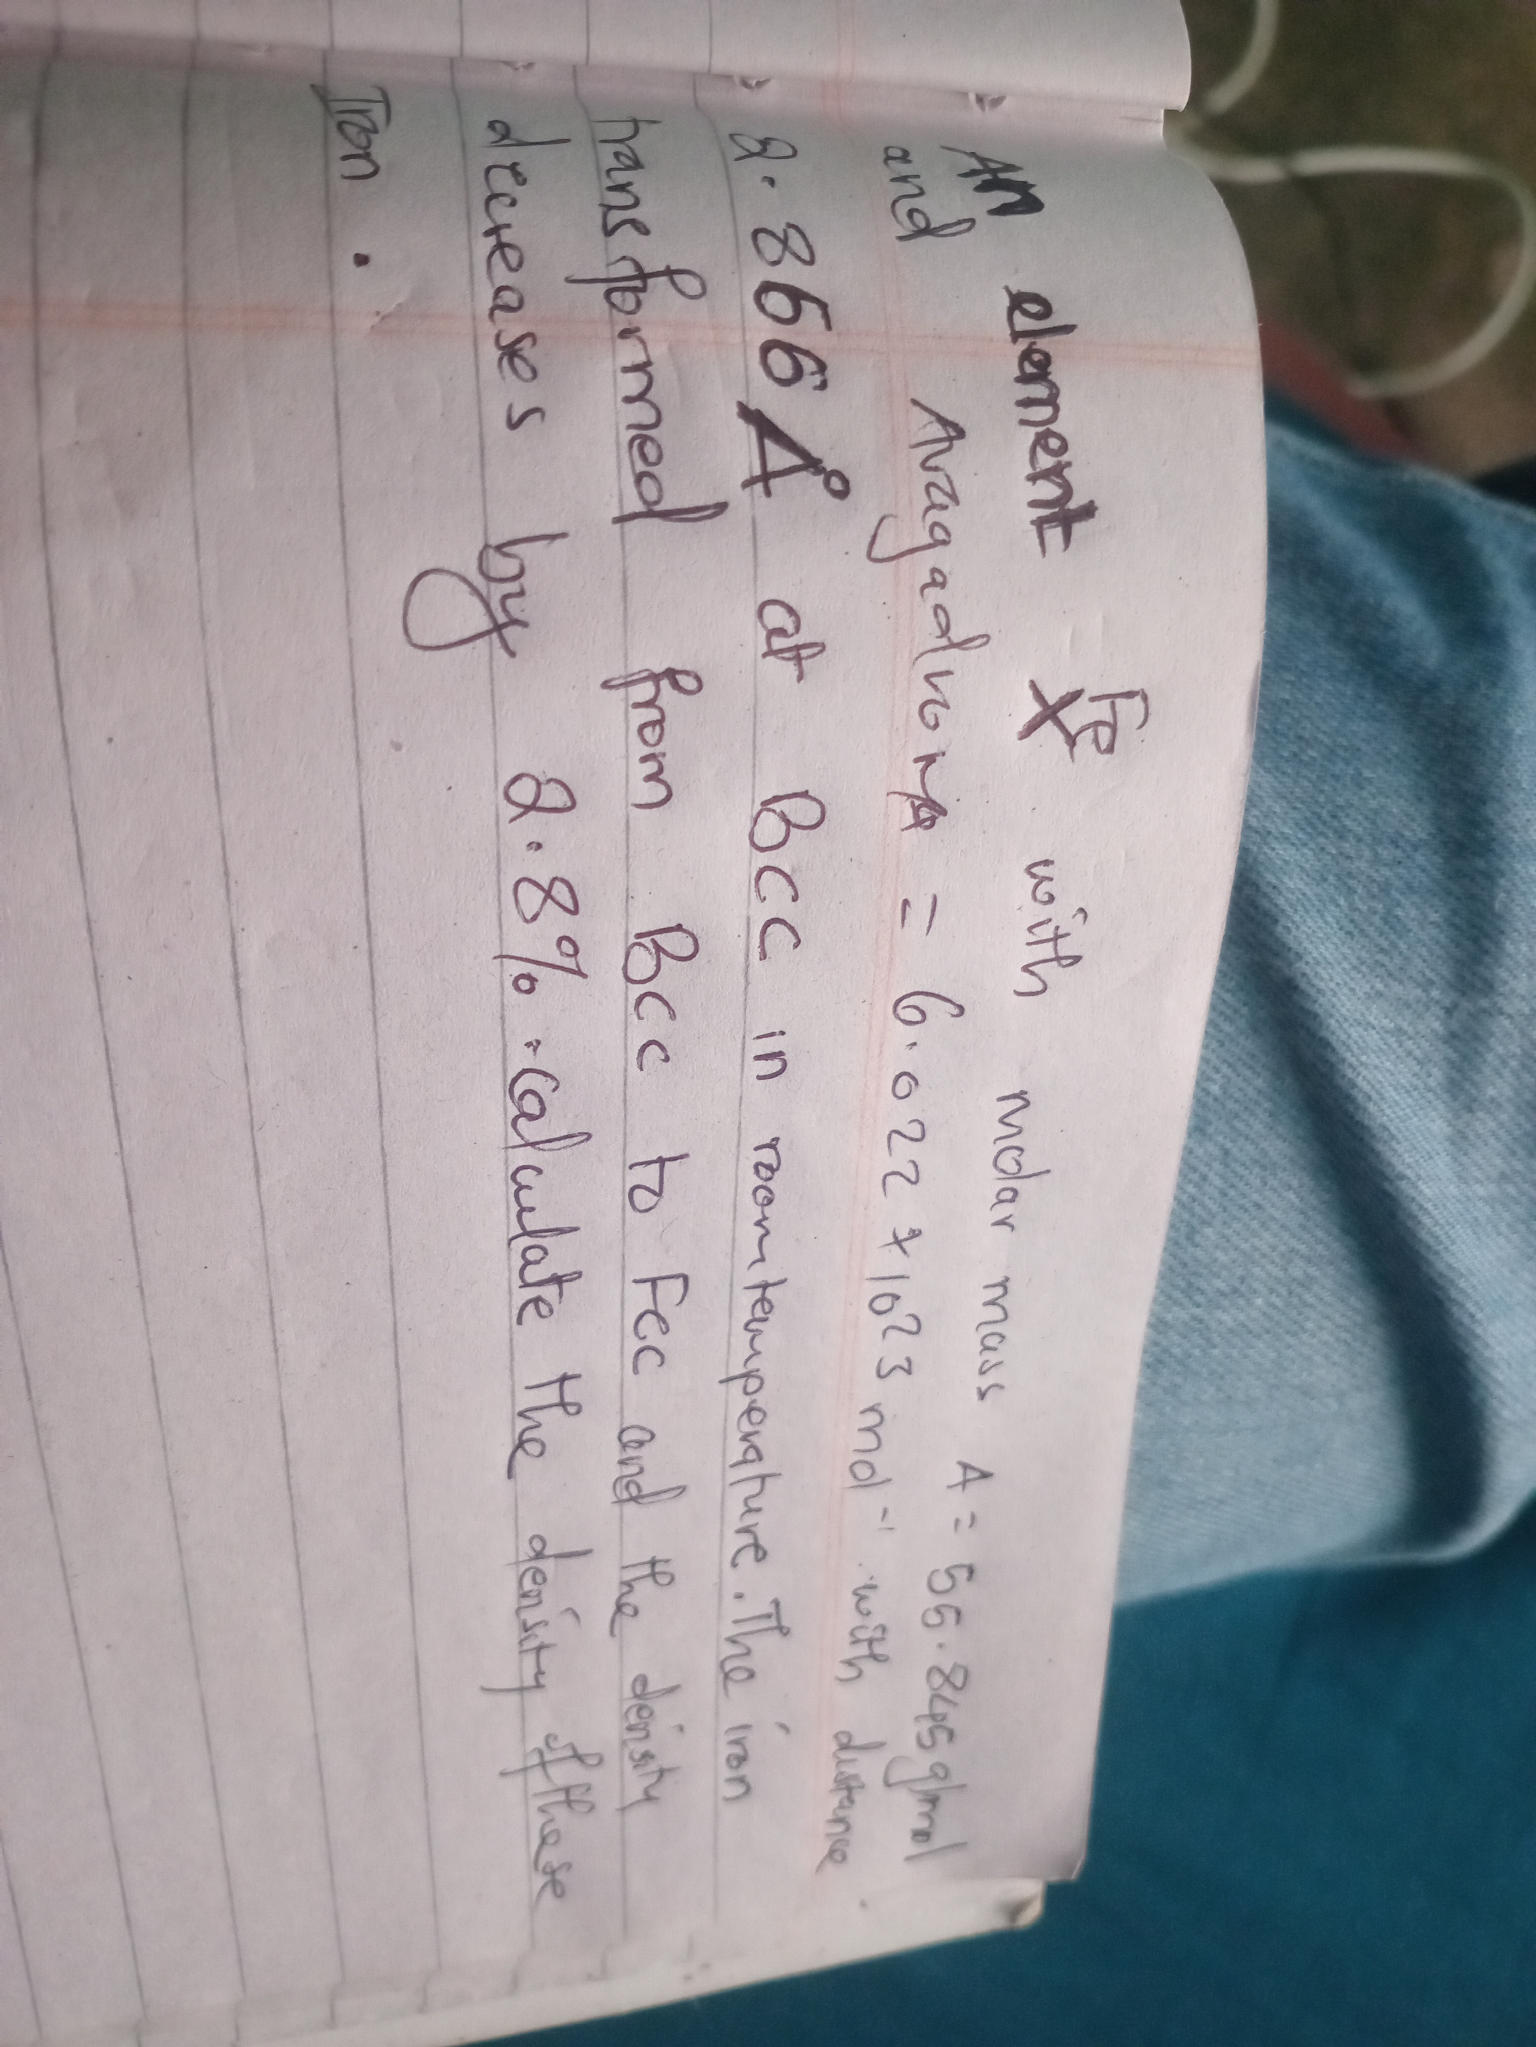 An element Fe with molar mass A = 55.845 g/mol
and Avagadro NA = 6.022 × 10²³ mol⁻¹ with distance
2.866 A° at Bcc in room temperature. The iron
transformed from Bcc to Fcc and the density
decreases by 2.8%. calculate the density of these
Iron.